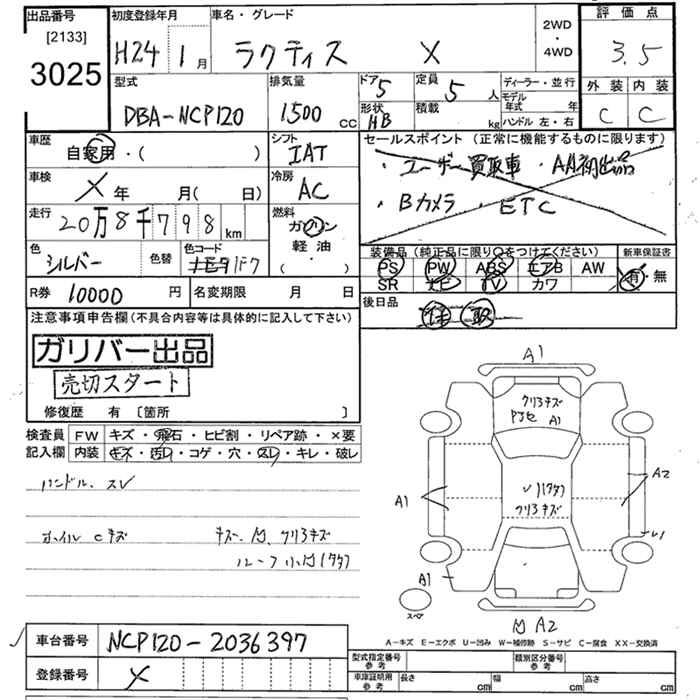 出品番号 初度登録年月 車名・グレード 2WD・4WD 評価点
[2133]
3025 H24 1月 ラクティス X 3.5
型式 排気量 ドア 5 定員 5人 ディーラー・並行 外装 内装
DBA-NCP120 1500 CC 形状 HB 積載 kg モデル年式 年 ハンドル 左・右 C C
車歴 自家用・( ) シフト IAT セールスポイント (正常に機能するものに限ります)
・ユーザー買取車 ・AA初出品
車検 X年 月( 日) 冷房 AC
・Bカメラ ・ETC
走行 20万8千798 km 燃料 ガソリン 軽油 ( )
色 シルバー 色替 色コード
装備品(純正品に限り○をつけてください) 新車保証書
PS PW ABS エアB AW 有・無
SR ナビ TV カワ
R券 10000 円 名変期限 月 日 後日品 保 取
注意事項申告欄(不具合内容等は具体的に記入して下さい)
ガリバー出品
売切スタート
修復歴 有 [箇所 ]
検査員記入欄 FW キズ・飛石・ヒビ割・リペア跡・×要
内装 キズ・汚れ・コゲ・穴・スレ・キレ・破レ
ハンドル、スレ
ホイルCキズ キズ、凹、クリアキズ
A1
クリアキズ
A1
A1 A2
クリアキズ
A1
スペア
凹 A2
A-キズ E-エクボ U-凹み W-補修跡 S-サビ C-腐食 XX-交換済
車台番号 NCP120-2036397
登録番号 X
型式指定番号 参考 類別区分番号 参考
車庫証明用 参考 長さ cm 幅 cm 高さ cm